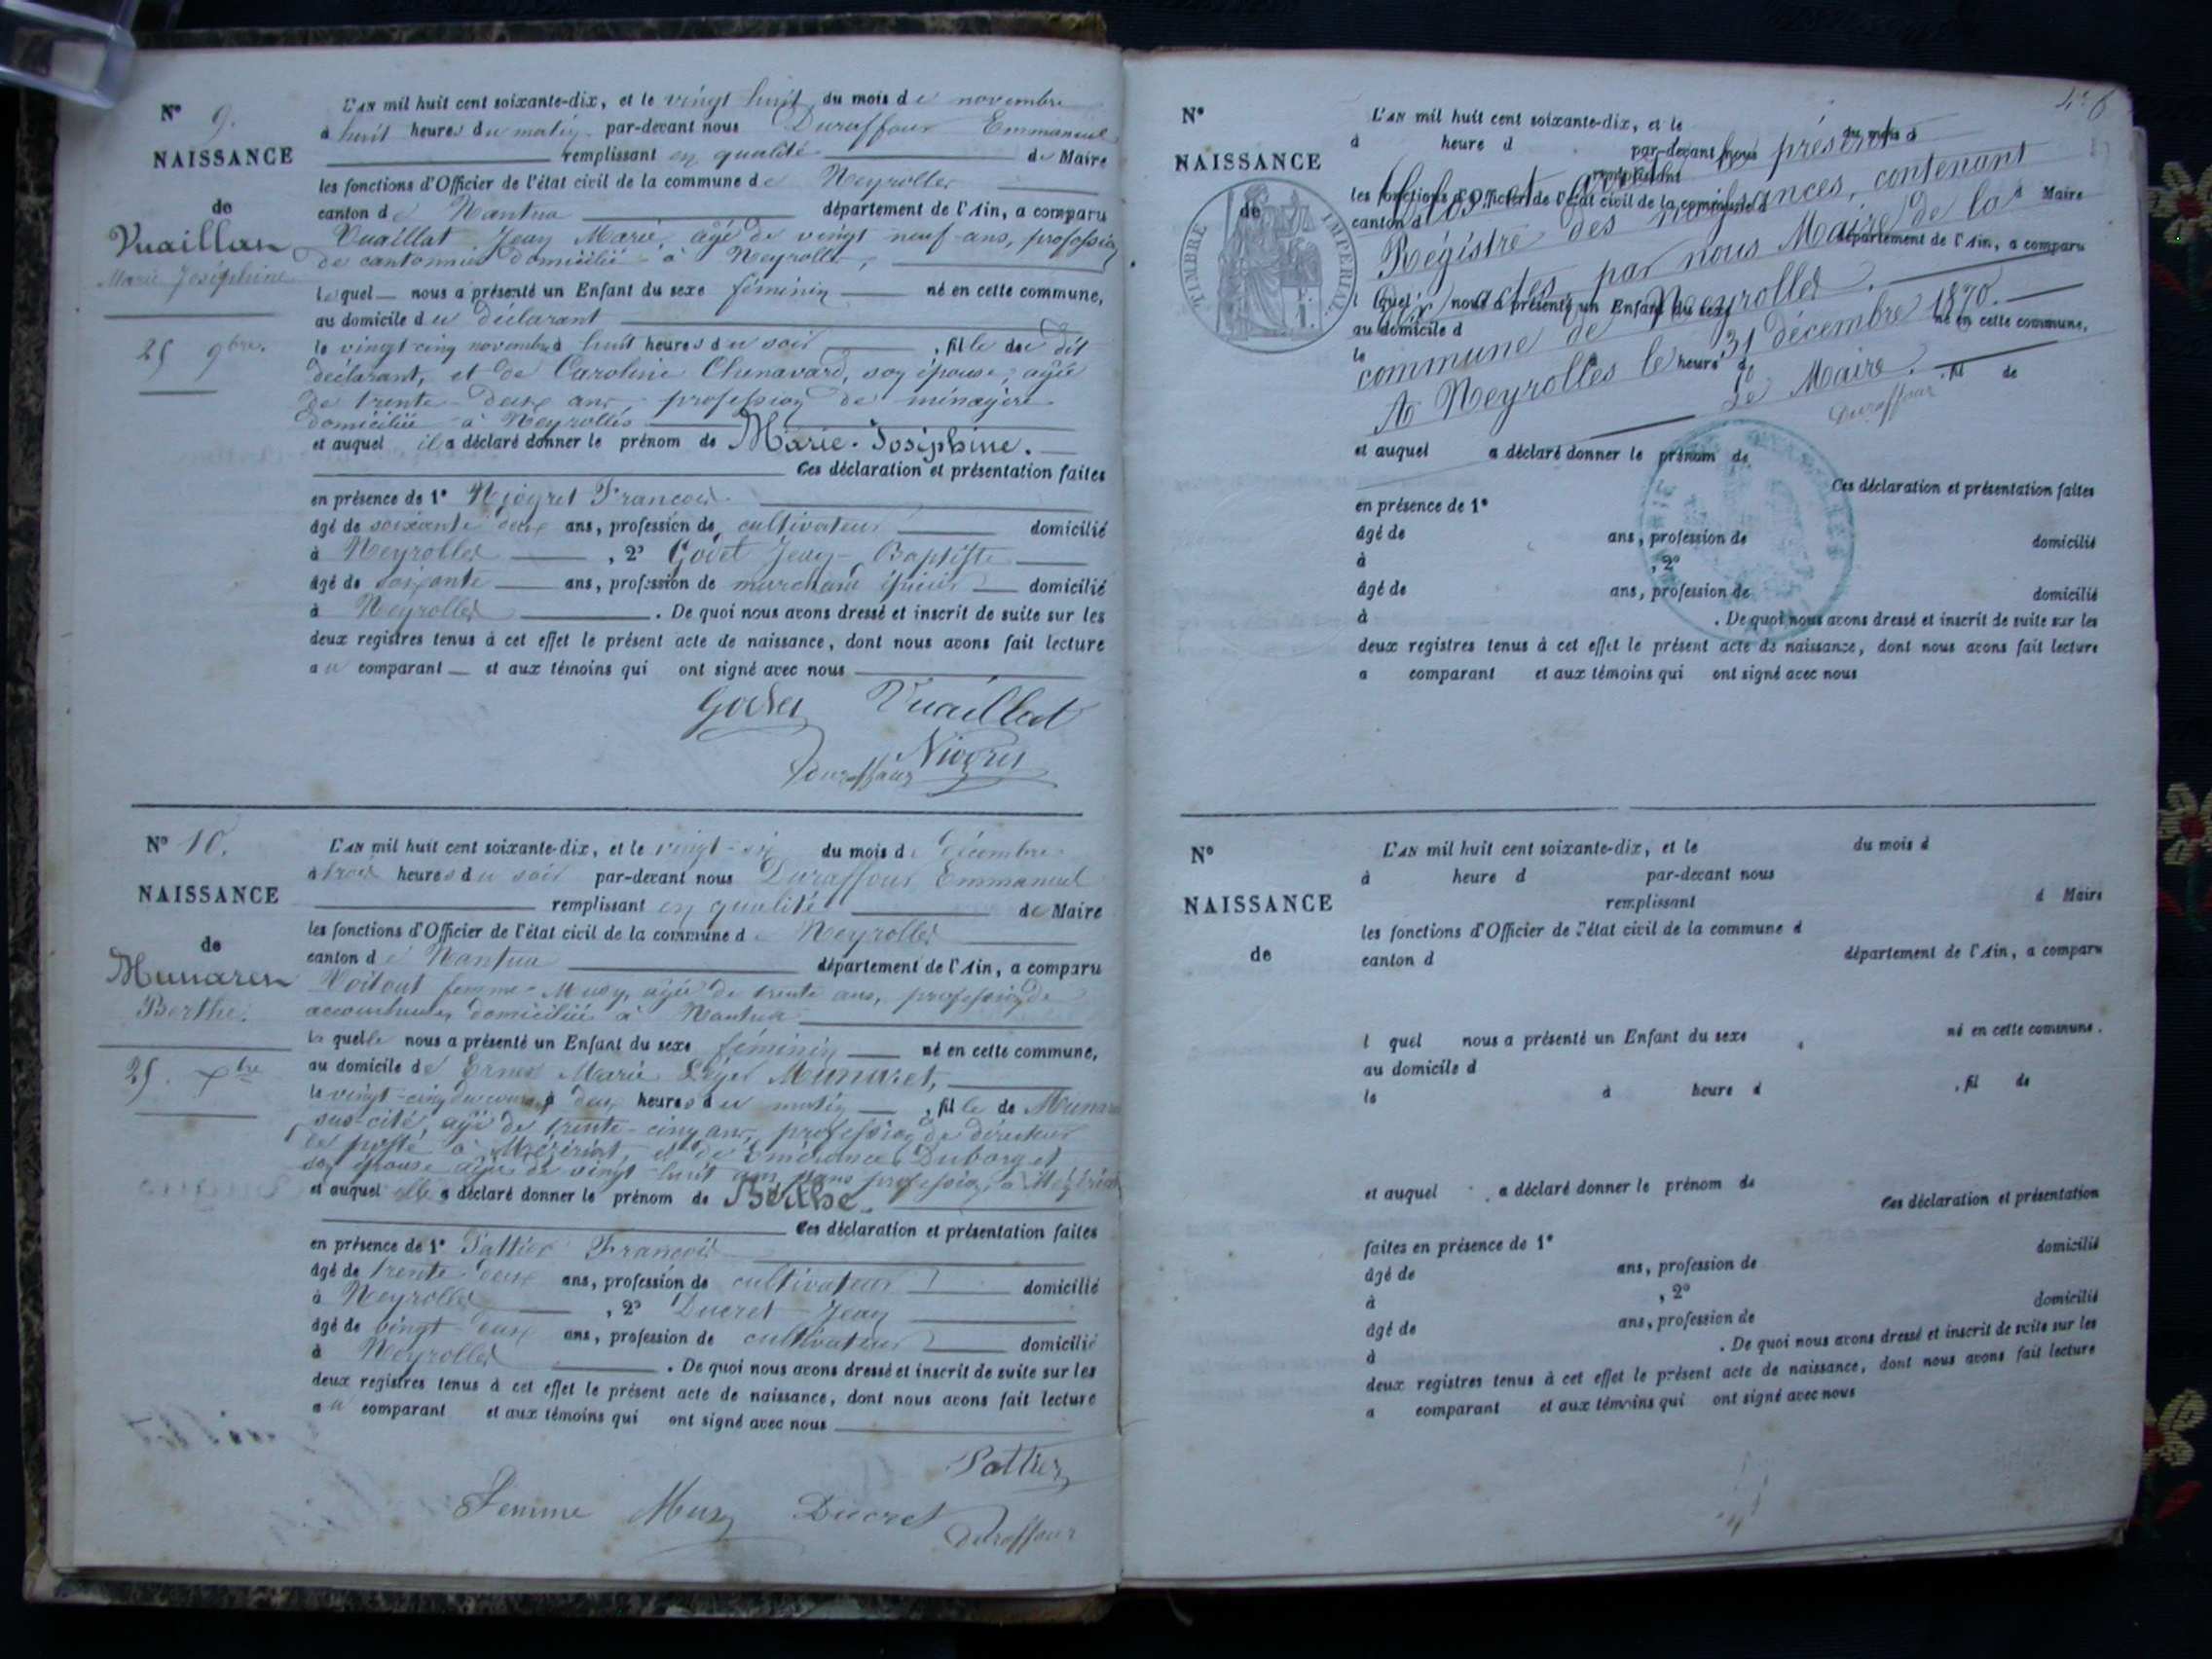 N° 9.
NAISSANCE
de
Vuaillat
Marie Joséphine
25 9bre.
L'AN mil huit cent soixante-dix, et le vingt huit du mois de novembre
à huit heures du matin par-devant nous Duraffour Emmanuel
remplissant en qualité de Maire
les fonctions d'Officier de l'état civil de la commune de Neyrolles
canton de Nantua département de l'Ain, a comparu
Vuaillat Jean Marie, âgé de vingt neuf ans, profession
de cantonnier domicilié à Neyrolles,
lequel nous a présenté un Enfant du sexe féminin né en cette commune,
au domicile du déclarant
le vingt cinq novembre à huit heures du soir, fille du dit
déclarant, et de Caroline Chenavard, son épouse, âgée
de trente deux ans, profession de ménagère
domiciliée à Neyrolles
et auquel il a déclaré donner le prénom de Marie-Joséphine.
Ces déclaration et présentation faites
en présence de 1° Niogret François
âgé de soixante deux ans, profession de cultivateur domicilié
à Neyrolles, 2° Godet Jean-Baptiste
âgé de soixante ans, profession de marchand épicier domicilié
à Neyrolles. De quoi nous avons dressé et inscrit de suite sur les
deux registres tenus à cet effet le présent acte de naissance, dont nous avons fait lecture
au comparant et aux témoins qui ont signé avec nous
Godet Vuaillat
Duraffour Niogret
N° 10.
NAISSANCE
de
Munaret
Berthe.
25. Xbre
L'AN mil huit cent soixante-dix, et le vingt-six du mois de décembre
à trois heures du soir par-devant nous Duraffour Emmanuel
remplissant en qualité de Maire
les fonctions d'Officier de l'état civil de la commune de Neyrolles
canton de Nantua département de l'Ain, a comparu
femme Musy, âgée de trente ans, profession de
accoucheuse, domiciliée à Nantua
laquelle nous a présenté un Enfant du sexe féminin né en cette commune,
au domicile de Ernest Marie Léger Munaret,
le vingt-cinq du courant à deux heures du matin, fille de Munaret
sus-cité, âgé de trente-cinq ans, profession de directeur
de poste à Mézériat, et de Duborget
son épouse âgée de vingt-huit ans, sans profession, à Mézériat
et auquel elle a déclaré donner le prénom de Berthe.
Ces déclaration et présentation faites
en présence de 1° Pattier François
âgé de trente deux ans, profession de cultivateur domicilié
à Neyrolles, 2° Ducret Jean
âgé de vingt-deux ans, profession de cultivateur domicilié
à Neyrolles. De quoi nous avons dressé et inscrit de suite sur les
deux registres tenus à cet effet le présent acte de naissance, dont nous avons fait lecture
au comparant et aux témoins qui ont signé avec nous
Pattier
Femme Musy Ducret
Duraffour
6
N°
NAISSANCE
de
TIMBRE IMPERIAL.
L'AN mil huit cent soixante-dix, et le du mois d
à heure d par-devant nous
remplissant d Maire
les fonctions d'Officier de l'état civil de la commune d
canton d département de l'Ain, a comparu
l quel nous a présenté un Enfant du sexe né en cette commune,
au domicile d
le heure d, fil de
Clos et arrêté le présent
Régistre des naissances, contenant
dix actes, par nous Maire de la
commune de Neyrolles.
A Neyrolles le 31 décembre 1870.
Le Maire.
Duraffour
et auquel a déclaré donner le prénom de
Ces déclaration et présentation faites
en présence de 1°
âgé de ans, profession de domicilié
à, 2°
âgé de ans, profession de domicilié
à. De quoi nous avons dressé et inscrit de suite sur les
deux registres tenus à cet effet le présent acte de naissance, dont nous avons fait lecture
a comparant et aux témoins qui ont signé avec nous
N°
NAISSANCE
de
L'AN mil huit cent soixante-dix, et le du mois d
à heure d par-devant nous
remplissant d Maire
les fonctions d'Officier de l'état civil de la commune d
canton d département de l'Ain, a comparu
l quel nous a présenté un Enfant du sexe né en cette commune.
au domicile d
le à heure d, fil de
et auquel a déclaré donner le prénom de
Ces déclaration et présentation
faites en présence de 1° domicilié
âgé de ans, profession de
à, 2° domicilié
âgé de ans, profession de
à. De quoi nous avons dressé et inscrit de suite sur les
deux registres tenus à cet effet le présent acte de naissance, dont nous avons fait lecture
a comparant et aux témoins qui ont signé avec nous